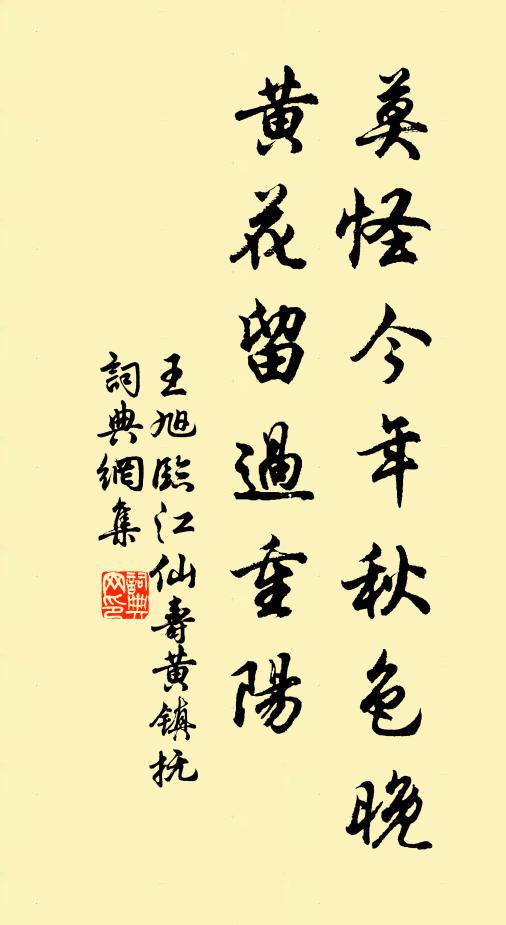 莫怪今年秋色晚
黄花留過重陽
王旭臨江仙壽黄鎮撫
詞典網集
詞典网印